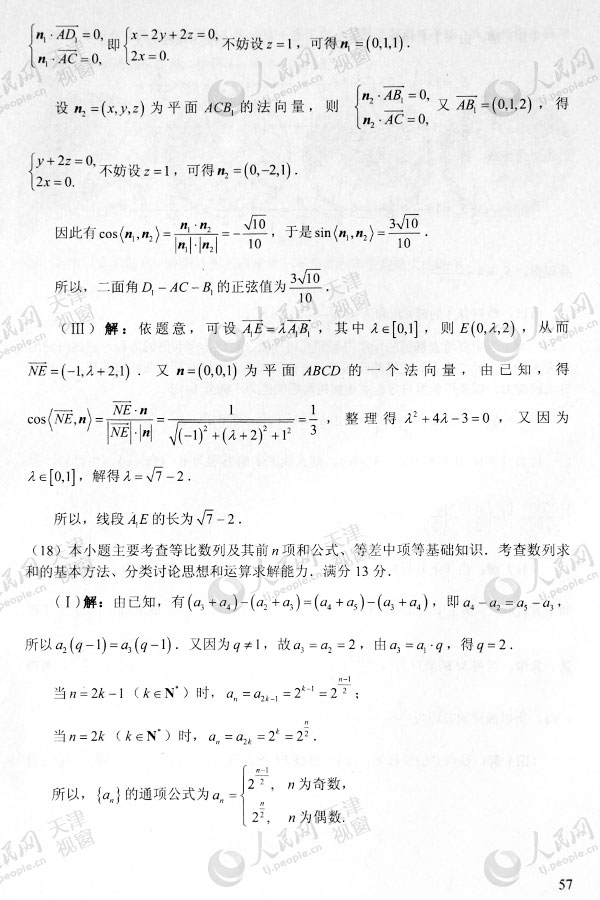 {n₁·AD₁=0, n₁·AC=0, 即 {x-2y+2z=0, 2x=0. 不妨设 z=1，可得 n₁=(0,1,1).
设 n₂=(x,y,z) 为平面 ACB₁ 的法向量，则 {n₂·AB₁=0, n₂·AC=0, 又 AB₁=(0,1,2)，得
{y+2z=0, 2x=0. 不妨设 z=1，可得 n₂=(0,-2,1).
因此有 cos⟨n₁,n₂⟩=n₁·n₂/(|n₁|·|n₂|)=-√10/10，于是 sin⟨n₁,n₂⟩=3√10/10.
所以，二面角 D₁-AC-B₁ 的正弦值为 3√10/10.
(Ⅲ) 解：依题意，可设 A₁E=λA₁B₁，其中 λ∈[0,1]，则 E(0,λ,2)，从而
NE=(-1,λ+2,1). 又 n=(0,0,1) 为平面 ABCD 的一个法向量，由已知，得
cos⟨NE,n⟩=NE·n/(|NE|·|n|)=1/√((-1)²+(λ+2)²+1²)=1/3，整理得 λ²+4λ-3=0，又因为
λ∈[0,1]，解得 λ=√7-2.
所以，线段 A₁E 的长为 √7-2.
(18) 本小题主要考查等比数列及其前 n 项和公式、等差中项等基础知识．考查数列求
和的基本方法、分类讨论思想和运算求解能力．满分 13 分．
(Ⅰ) 解：由已知，有 (a₃+a₄)-(a₂+a₃)=(a₄+a₅)-(a₃+a₄)，即 a₄-a₂=a₅-a₃，
所以 a₂(q-1)=a₃(q-1). 又因为 q≠1，故 a₃=a₂=2，由 a₃=a₁·q，得 q=2.
当 n=2k-1 (k∈N*) 时，aₙ=a₂ₖ₋₁=2^(k-1)=2^((n-1)/2)；
当 n=2k (k∈N*) 时，aₙ=a₂ₖ=2^k=2^(n/2).
所以，{aₙ} 的通项公式为 aₙ={2^((n-1)/2), n为奇数, 2^(n/2), n为偶数.
57
人民网 天津视窗
tj.people.cn